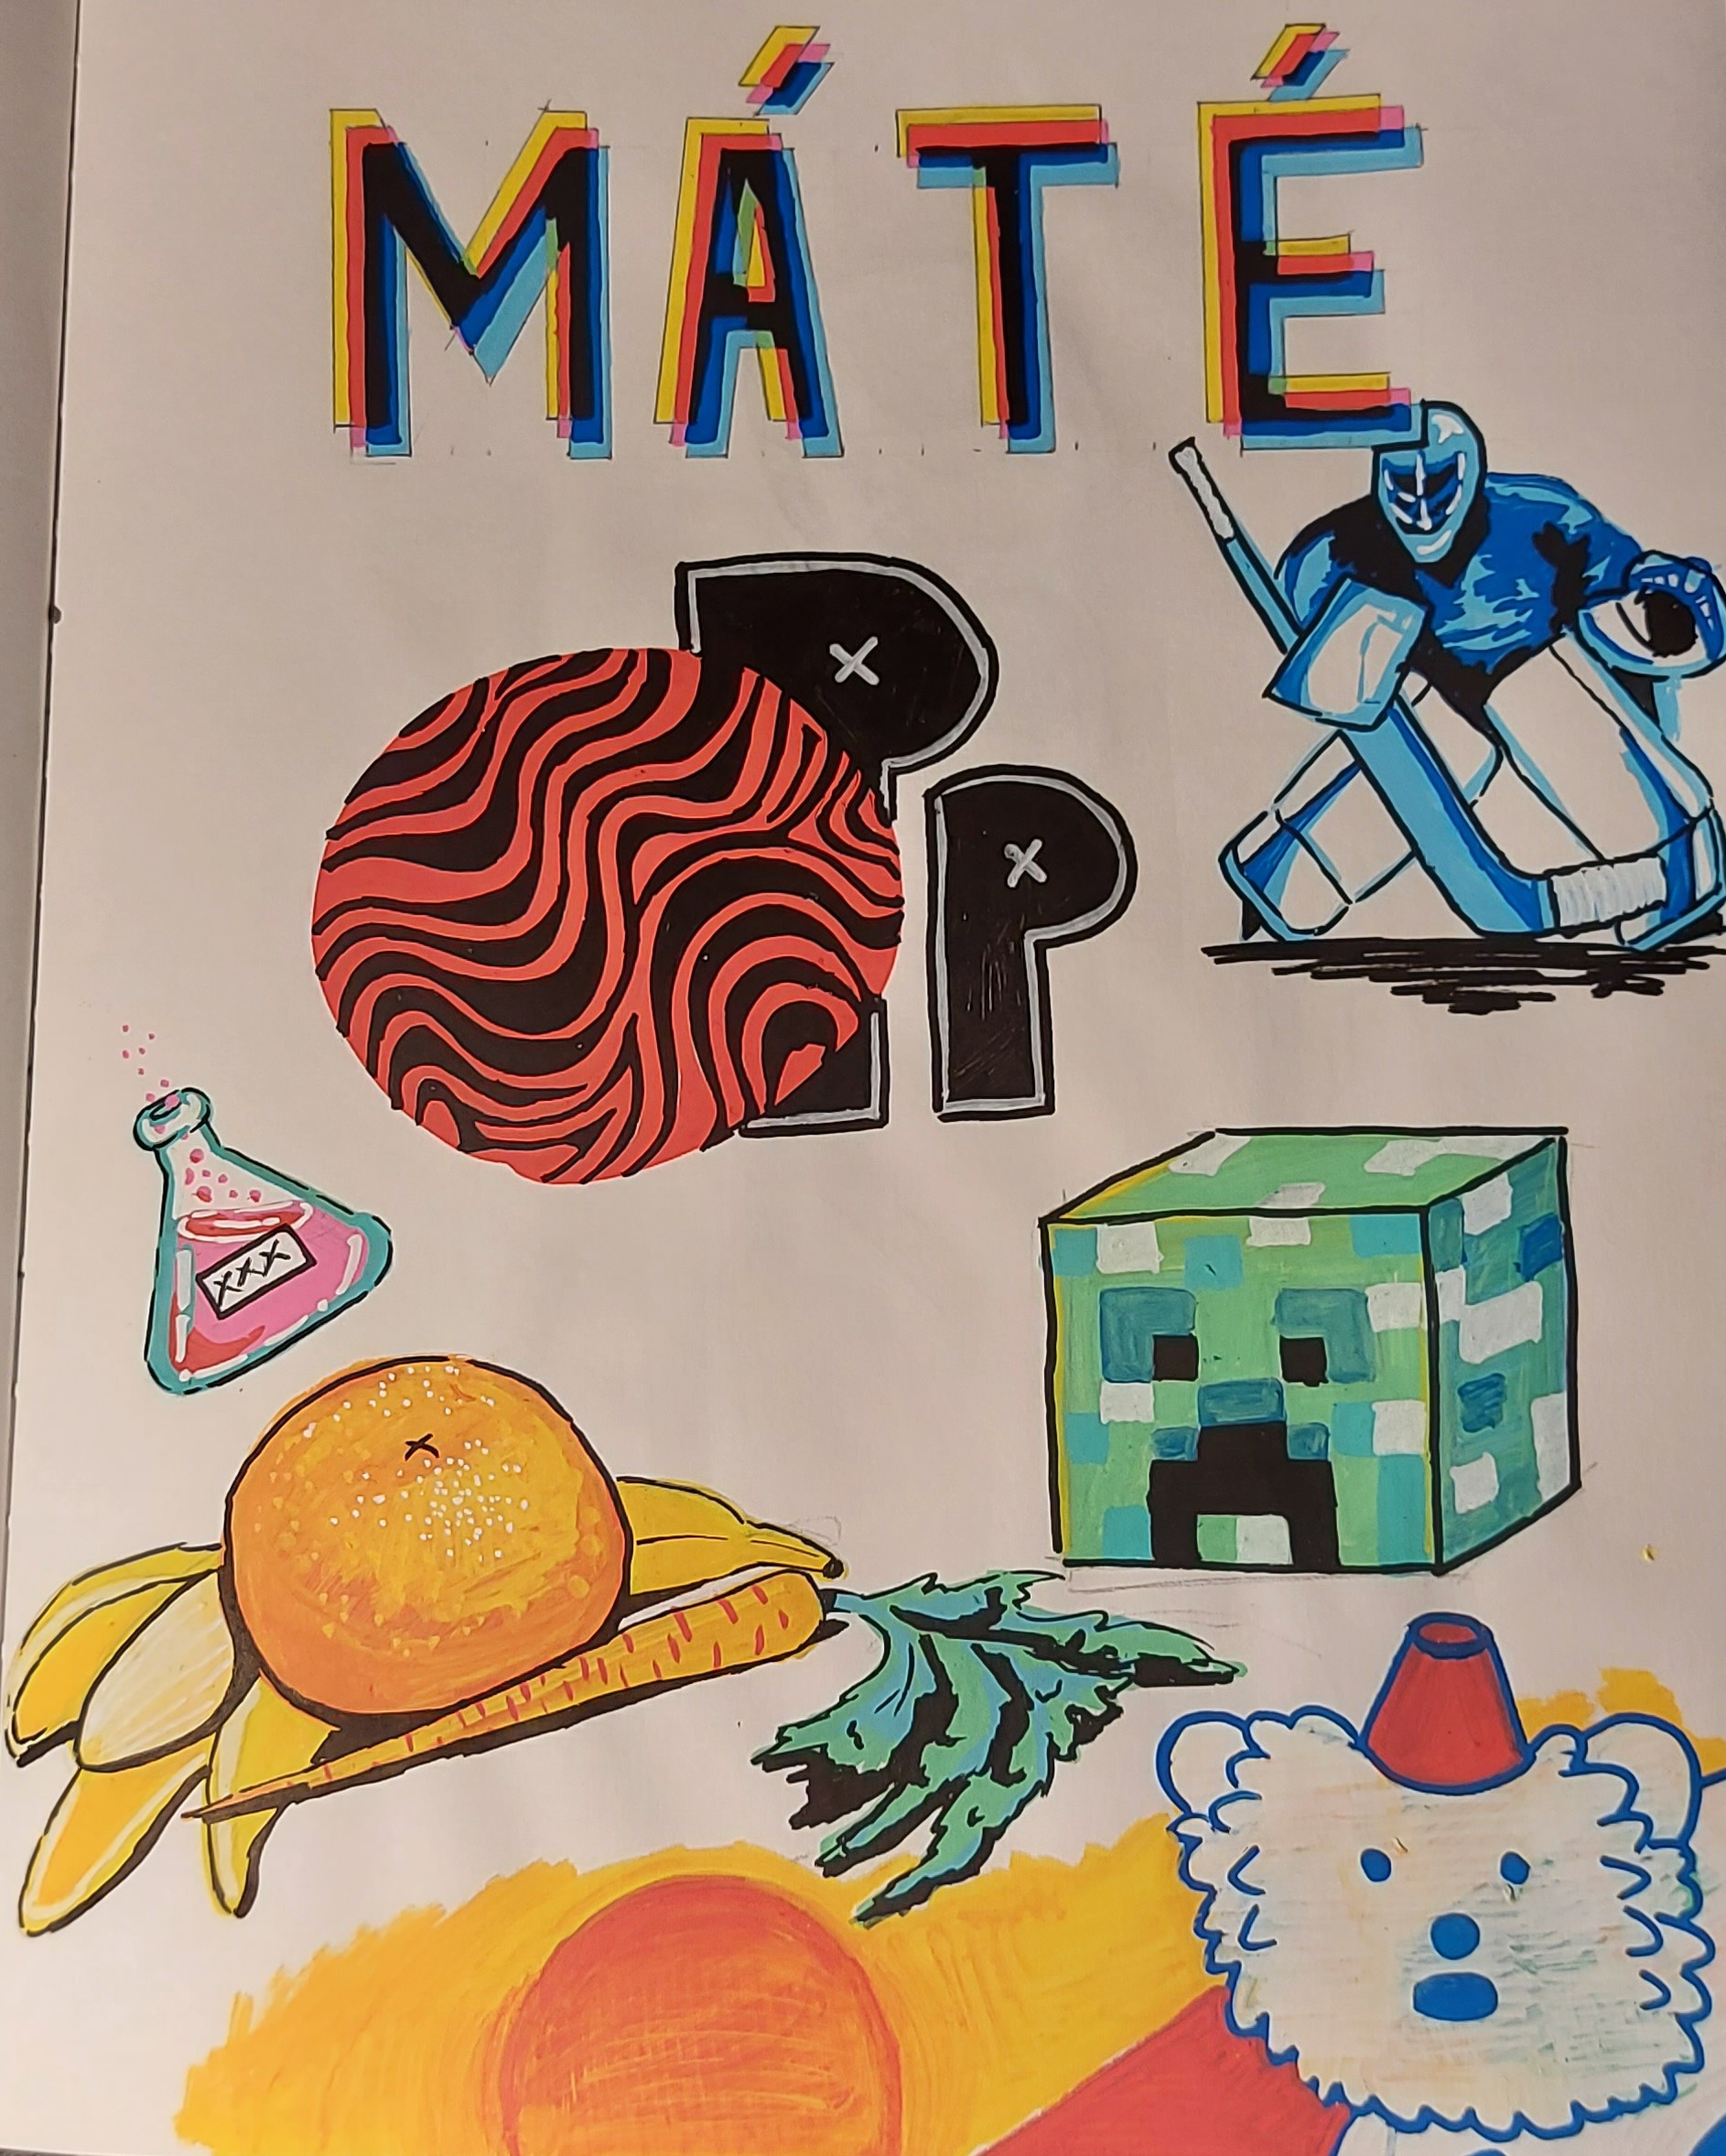 MÁTÉ
P
P
XXX